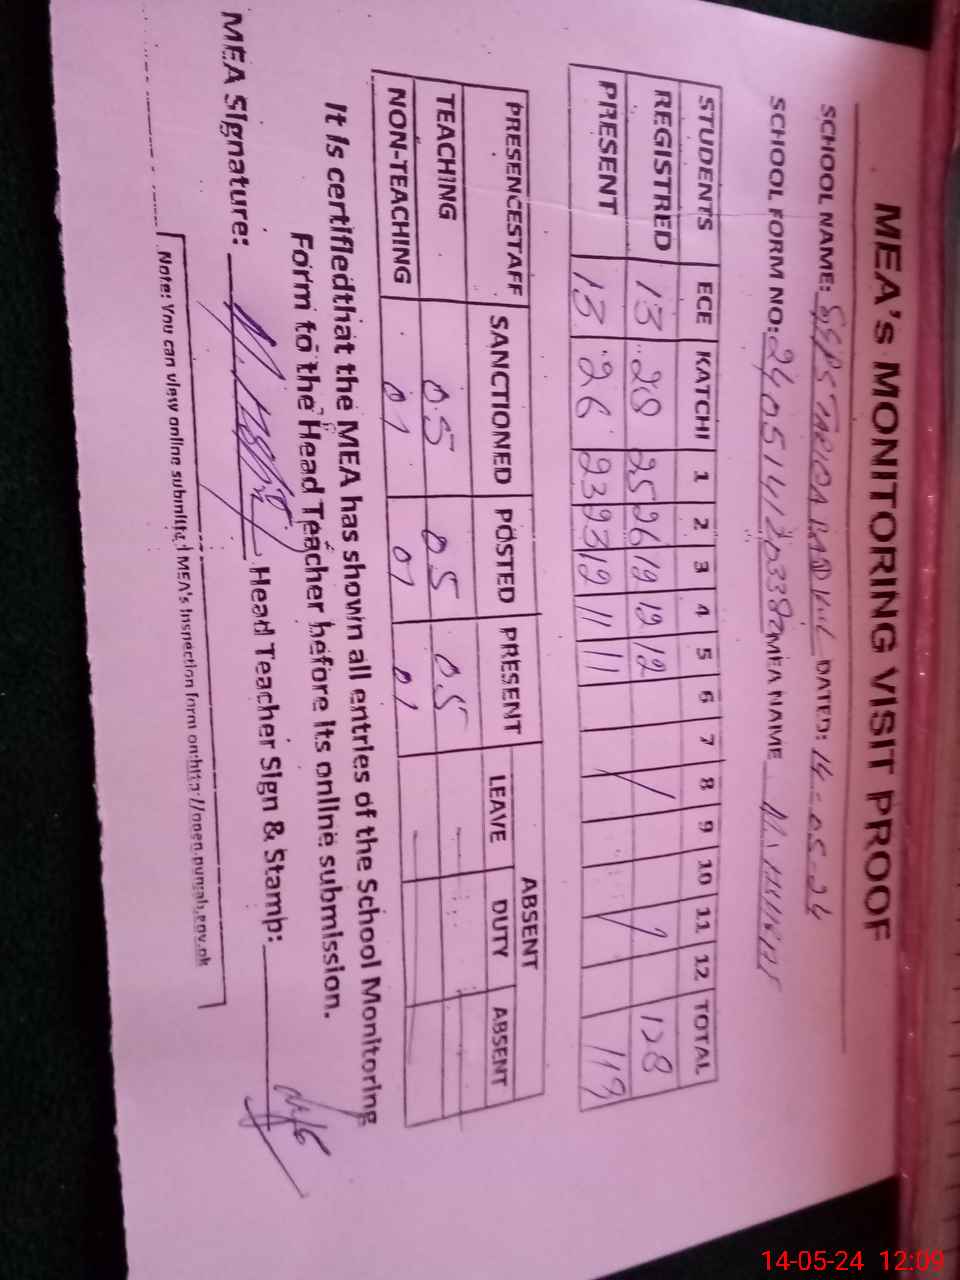 MEA's MONITORING VISIT PROOF
SCHOOL NAME: DATED: 14-05-24
SCHOOL FORM NO: MEA NAME
STUDENTS ECE KATCHI 1 2 3 4 5 6 7 8 9 10 11 12 TOTAL
REGISTRED 13 28 25 26 19 12 128
PRESENT 13 26 23 23 11 11 119
PRESENCESTAFF SANCTIONED POSTED PRESENT ABSENT
LEAVE DUTY ABSENT
TEACHING 05 05 05
NON-TEACHING 01 01 01
It is certifiedthat the MEA has shown all entries of the School Monitoring
Form to the Head Teacher before its online submission.
MEA Signature: Head Teacher Sign & Stamp:
Note: You can view online submitted MEA's Inspection form on:http://open.punjab.gov.pk
14-05-24 12:09